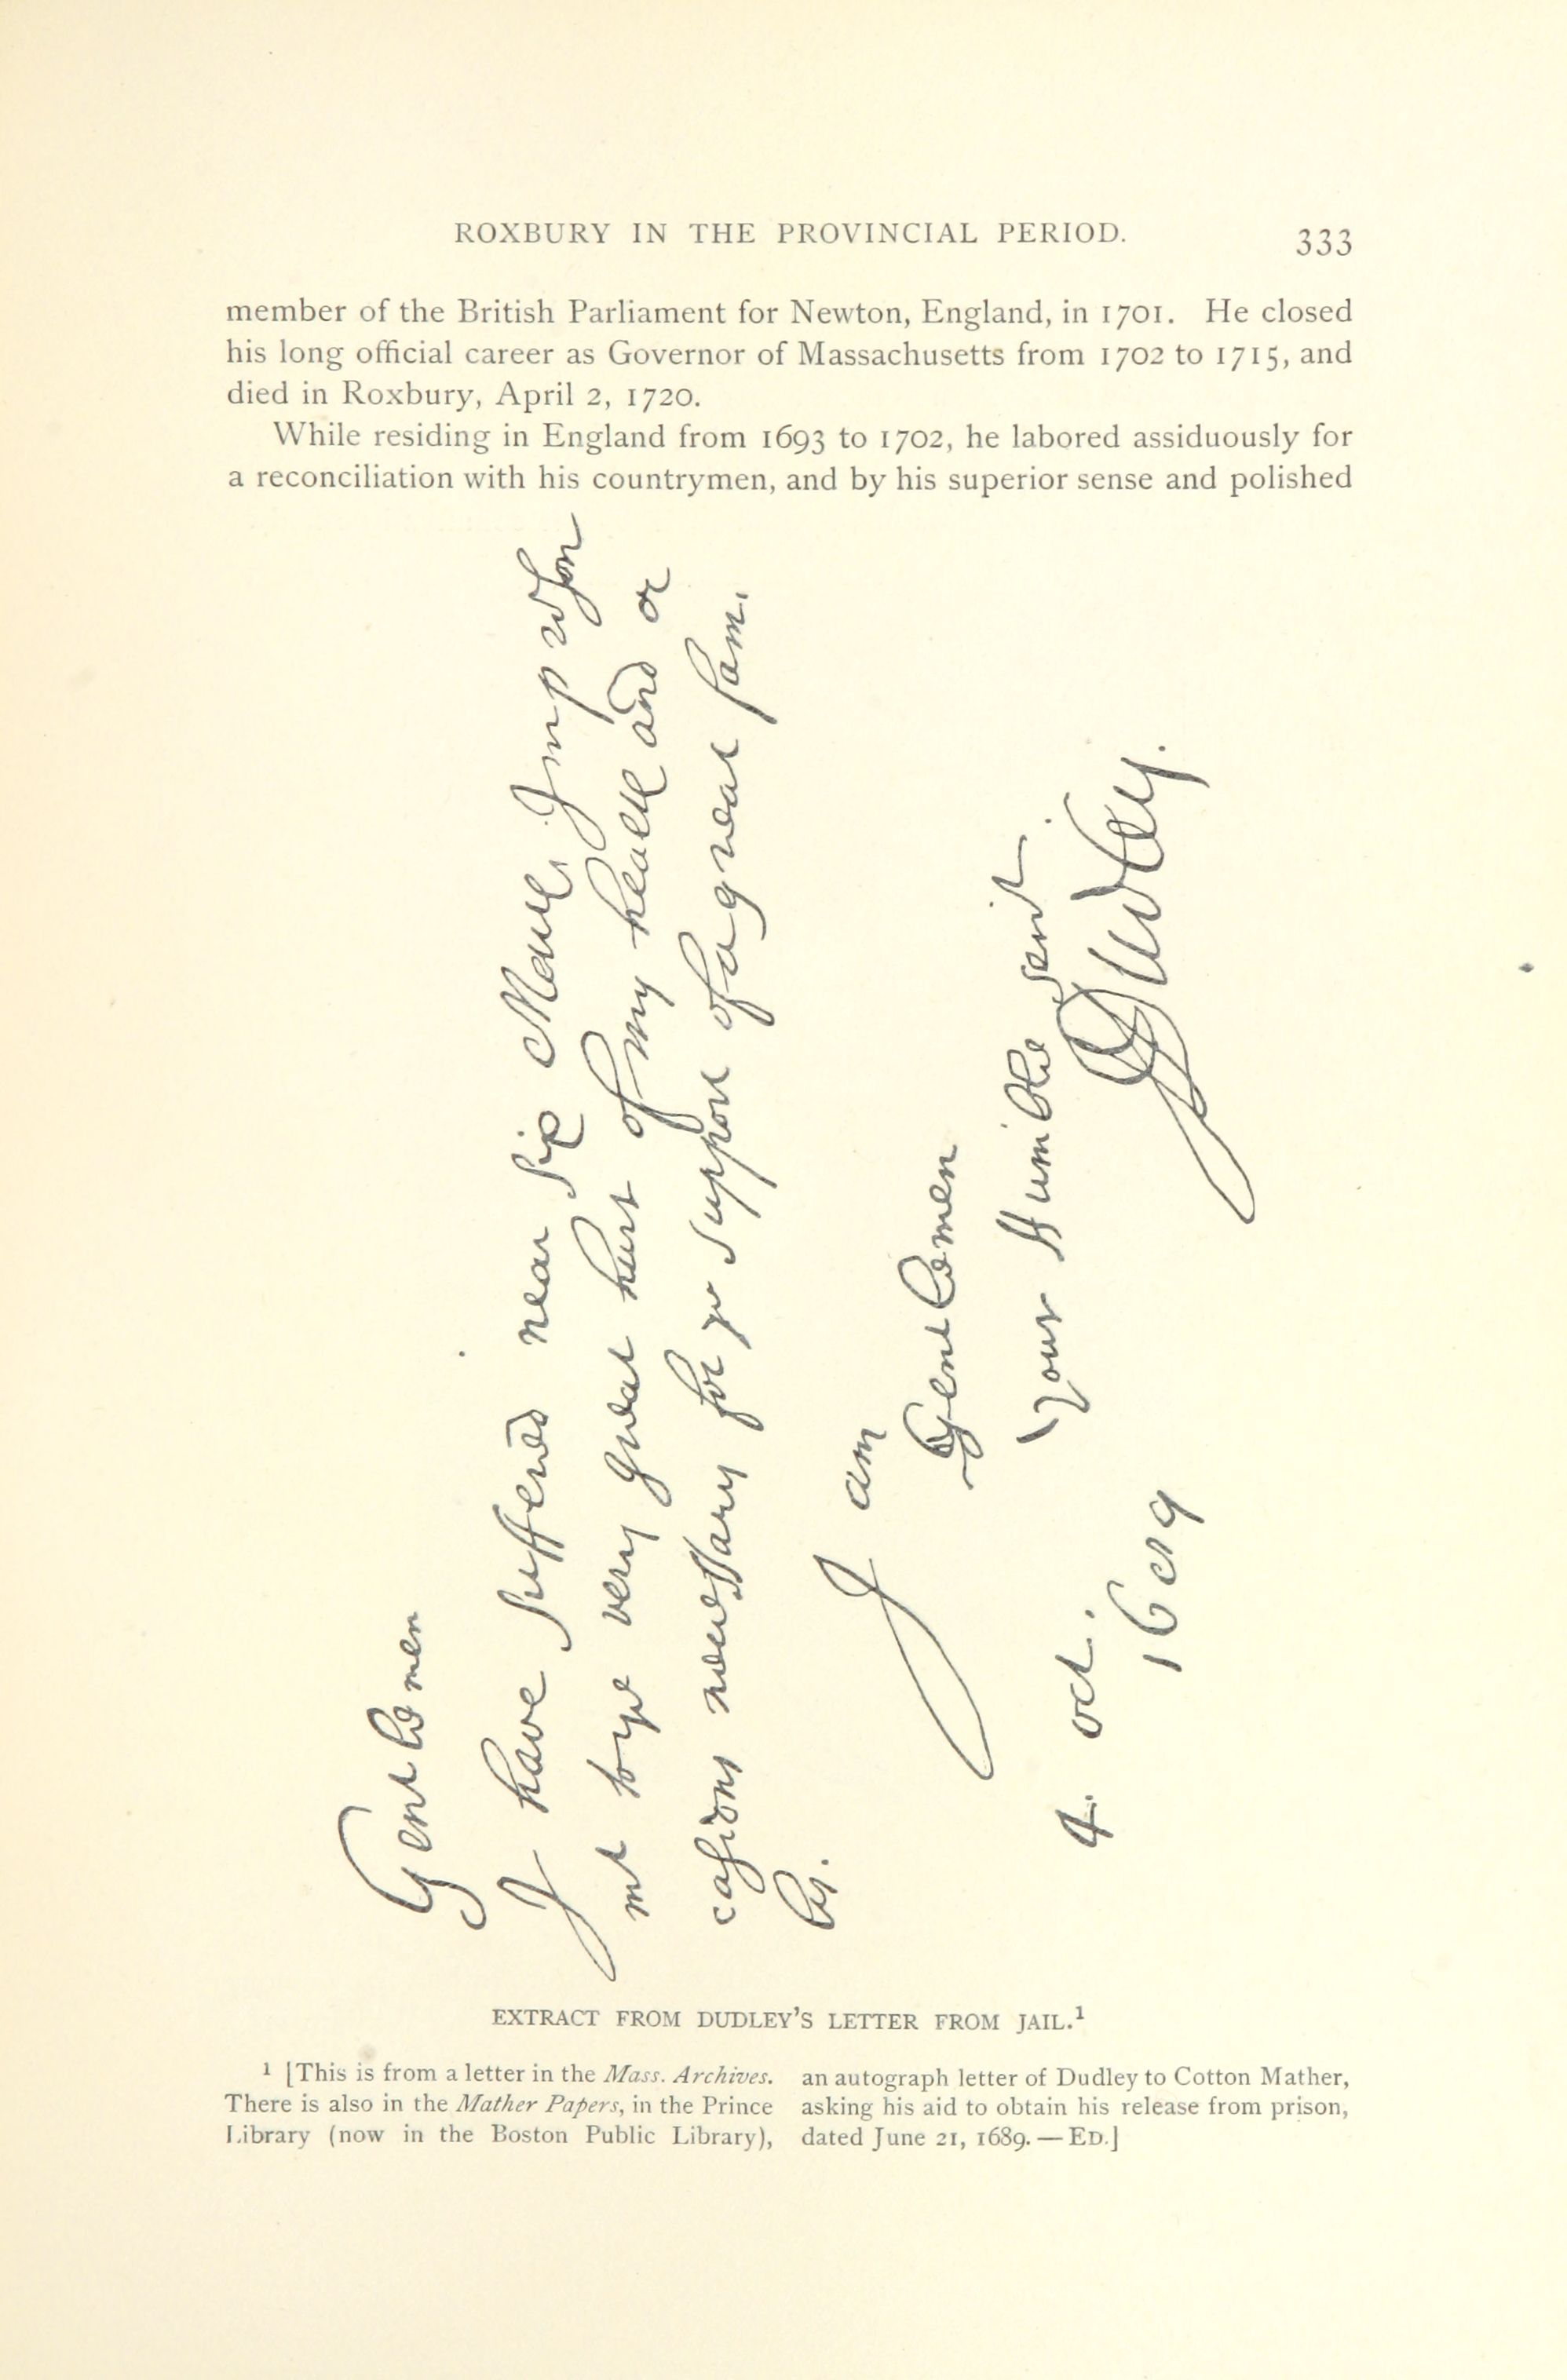 ROXBURY IN THE PROVINCIAL PERIOD. 333
member of the British Parliament for Newton, England, in 1701. He closed
his long official career as Governor of Massachusetts from 1702 to 1715, and
died in Roxbury, April 2, 1720.
While residing in England from 1693 to 1702, he labored assiduously for
a reconciliation with his countrymen, and by his superior sense and polished
Gentlemen
I have suffered near six Months Imprison
mt to ye very great hurt of my health and oc
casions necessary for ye support of a great fam.
ly.
I am
Gentlemen
Your Humble servt.
J Dudley.
4. oct.
1689
EXTRACT FROM DUDLEY'S LETTER FROM JAIL.¹
¹ [This is from a letter in the Mass. Archives.
There is also in the Mather Papers, in the Prince
Library (now in the Boston Public Library),
an autograph letter of Dudley to Cotton Mather,
asking his aid to obtain his release from prison,
dated June 21, 1689. — ED.]